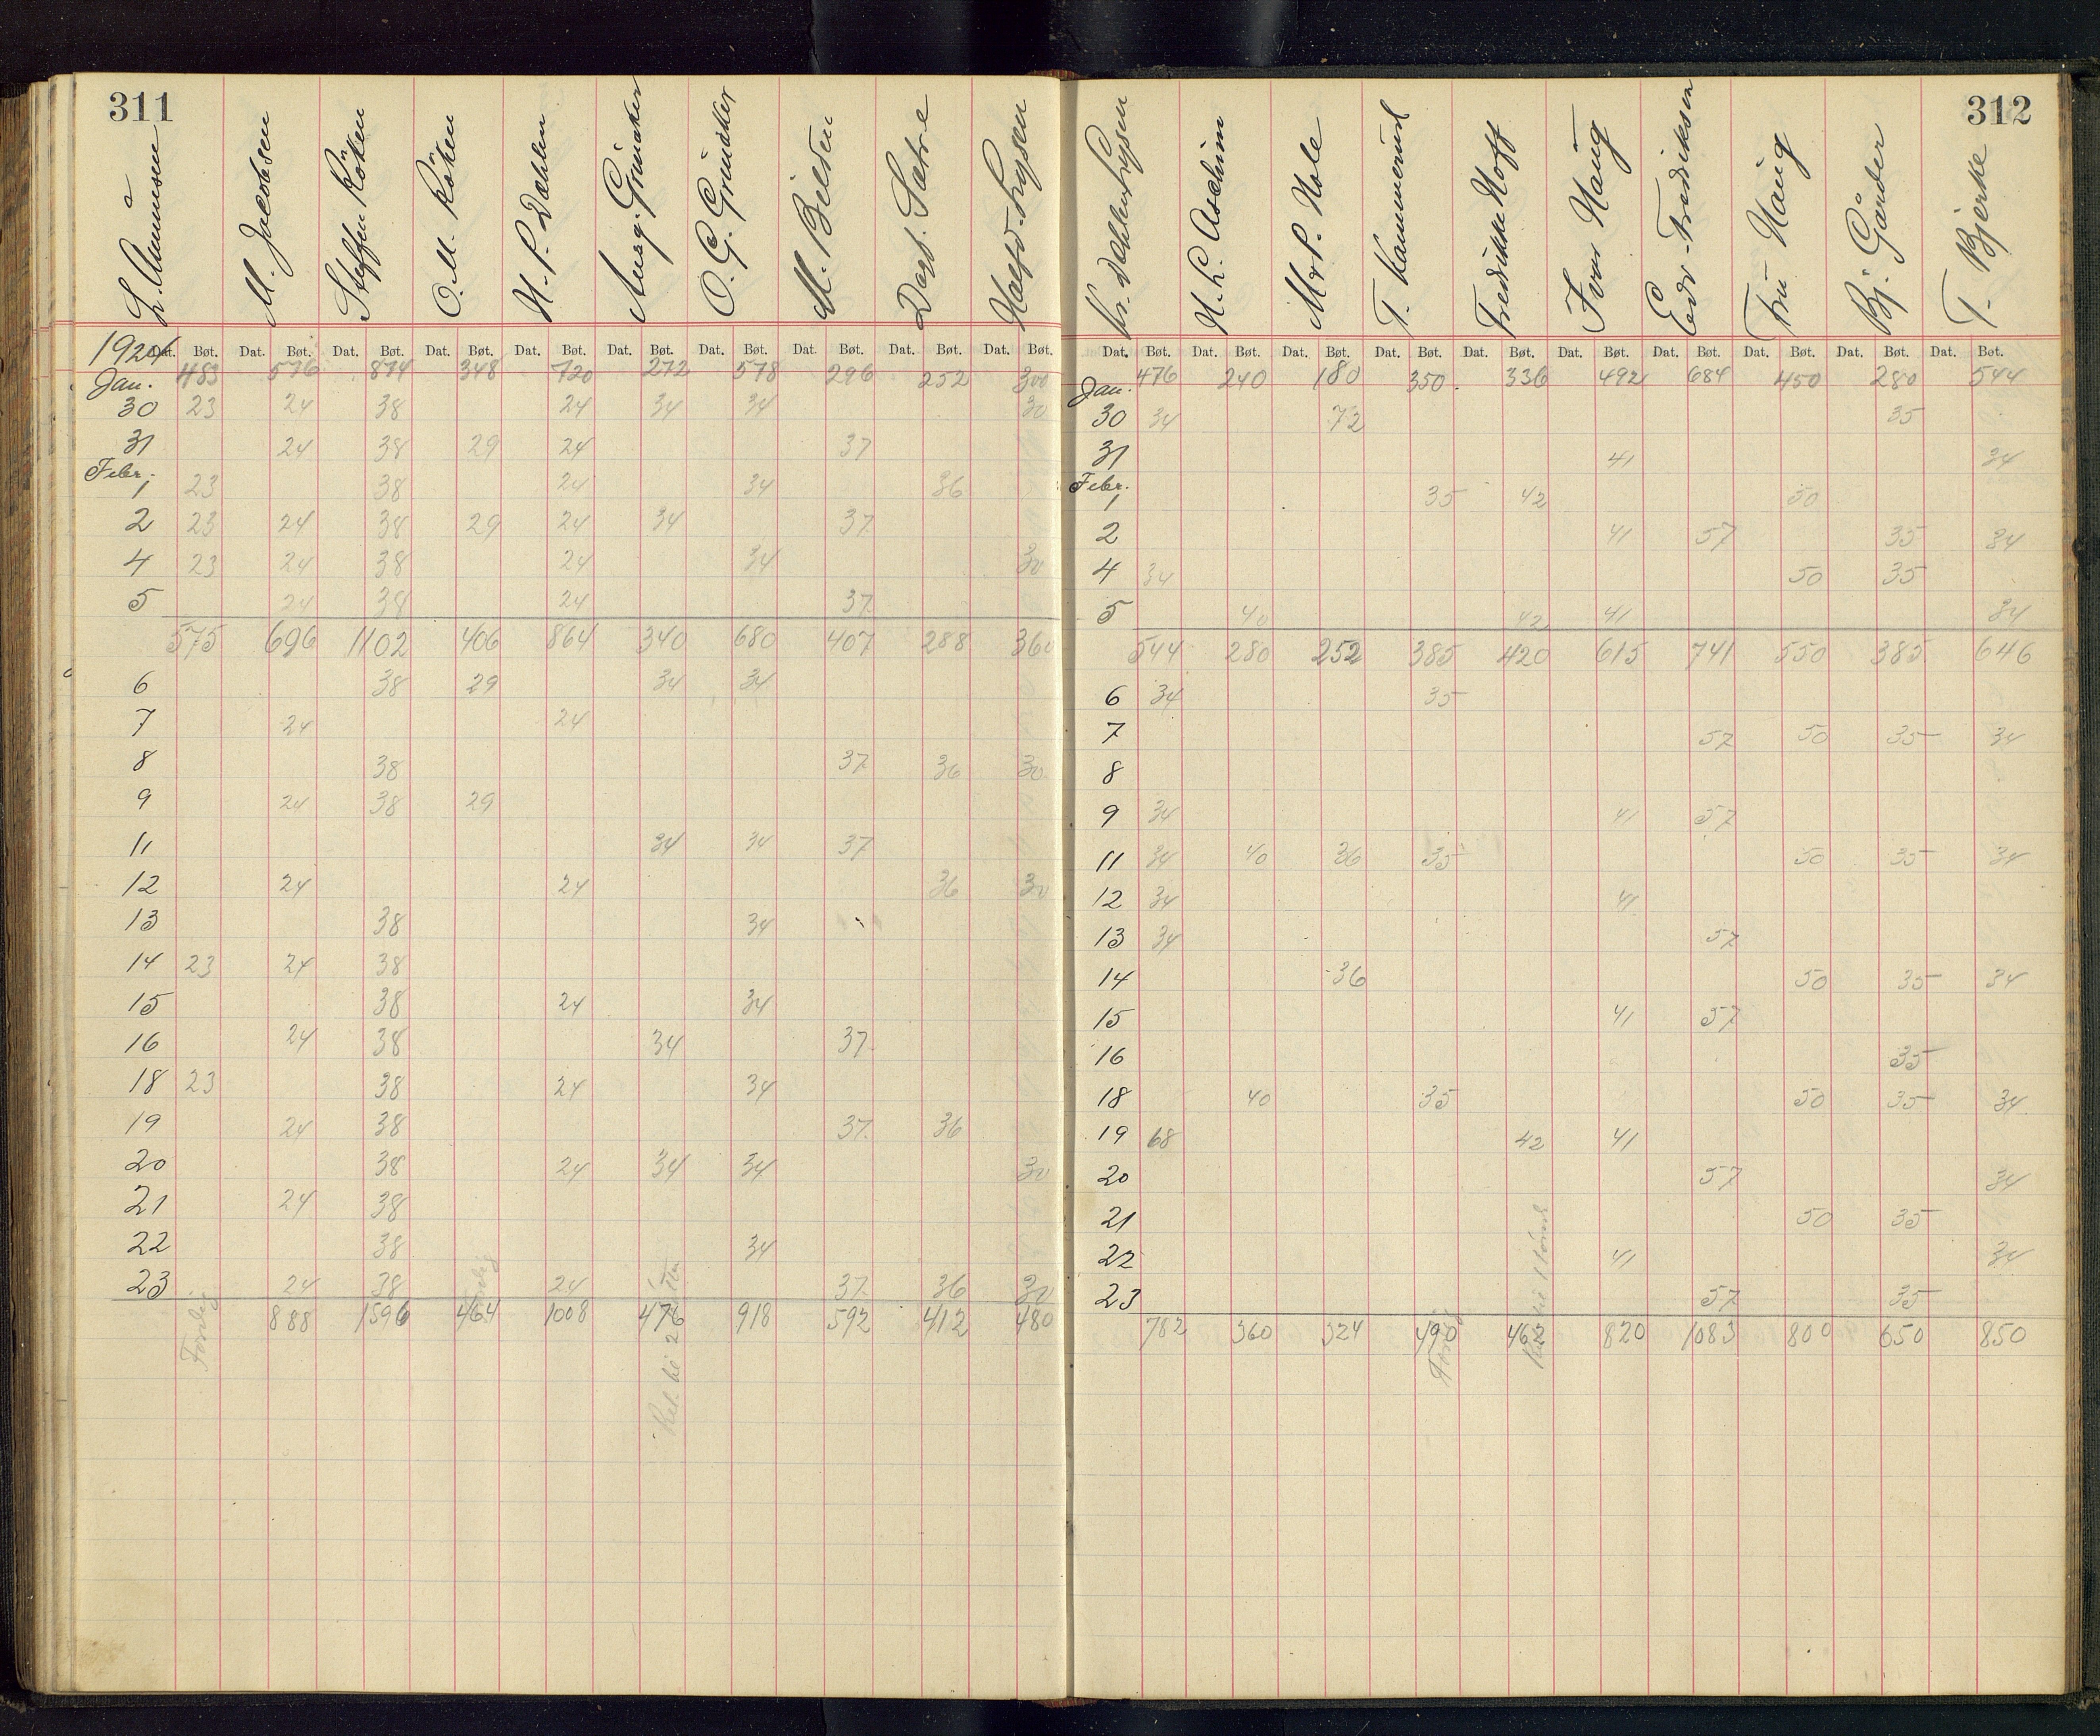 311
L. Aamnsen
M. Jacobsen
Steffen Röken
O. M. Röken
H. P. Dæhlen
Aug. Grinaker
O. G. Grinaker
M. Bilden
Dagf. Sætre
Halfd. Lysen
1924 Dat. Bøt. Dat. Bøt. Dat. Bøt. Dat. Bøt. Dat. Bøt. Dat. Bøt. Dat. Bøt. Dat. Bøt. Dat. Bøt. Dat. Bøt.
Jan. 483 576 874 348 720 272 578 296 252 300
30 23 24 38 24 34 34 30
31 24 38 29 24 37
Febr.
1 23 38 24 34 36
2 23 24 38 29 24 34 37
4 23 24 38 24 34 30
5 24 38 24 37
575 696 1102 406 864 340 680 407 288 360
6 38 29 34 34
7 24 24
8 38 37 36 30
9 24 38 29
11 34 34 37
12 24 24 36 30
13 38 34
14 23 24 38
15 38 24 34
16 24 38 34 37
18 23 38 24 34
19 24 38 37 36
20 38 24 34 34 30
21 24 38
22 38 34
23 24 38 24 37 36 30
888 1596 464 1008 476 918 592 412 480
312
Kr. Dæhlen Lysen
H. L. Aschim
M. P. Hole
T. Kammerud
Fredrikke Hoff
Iver Haug
Edv. Fredriksen
Fru Haug
Bj. Gårder
T. Bjerke
Dat. Bøt. Dat. Bøt. Dat. Bøt. Dat. Bøt. Dat. Bøt. Dat. Bøt. Dat. Bøt. Dat. Bøt. Dat. Bøt. Dat. Bøt.
Jan. 476 240 180 350 336 492 684 450 280 544
30 34 72 35
31 41 34
Febr.
1 35 42 50
2 41 57 35 34
4 34 50 35
5 40 42 41 34
544 280 252 385 420 615 741 550 385 646
6 34 35
7 57 50 35 34
8
9 34 41 57
11 34 40 36 35 50 35 34
12 34 41
13 34 57
14 36 50 35 34
15 41 57
16 35
18 40 35 50 35 34
19 68 42 41
20 57 34
21 50 35
22 41 34
23 57 35
782 360 324 490 462 820 1083 800 650 850